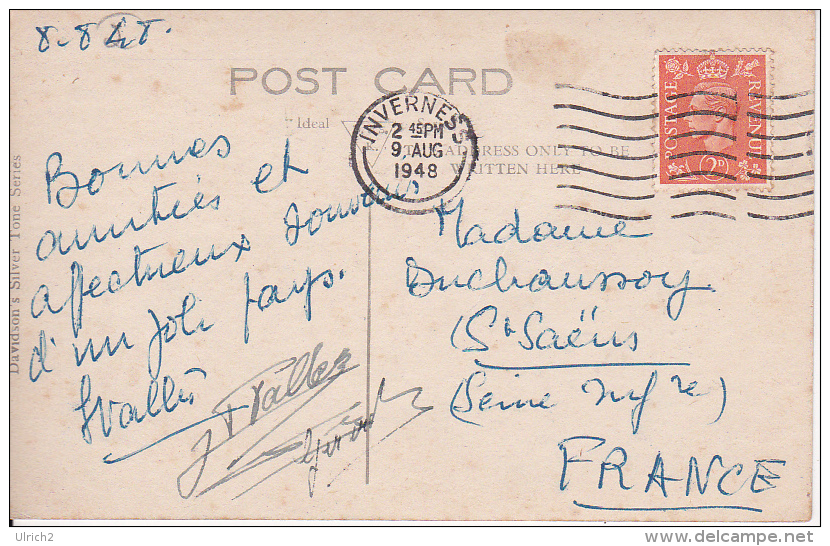 8.8.48.
POST CARD
Ideal
ADDRESS ONLY TO BE
WRITTEN HERE
INVERNESS
2 45 PM
9 AUG
1948
POSTAGE
REVENUE
2D
Davidson's Silver Tone Series
Bonnes
amitiés et
affectueux souvenirs
d'un joli pays.
Madame
Duchaussoy
(St Saëns
(Seine Infre)
FRANCE
Ulrich2
www.delcampe.net